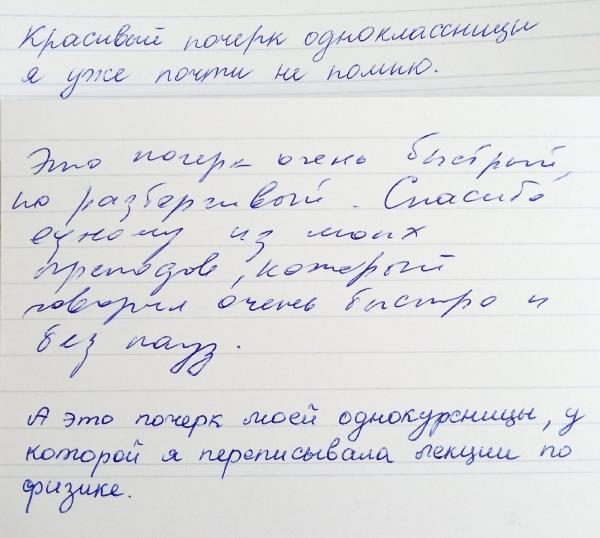 Красивый почерк одноклассницы
я уже почти не помню.
Это почерк очень быстрый,
но разборчивый. Спасибо
одному из моих
преподов, который
говорил очень быстро и
без пауз.
А это почерк моей однокурсницы, у
которой я переписывала лекции по
физике.